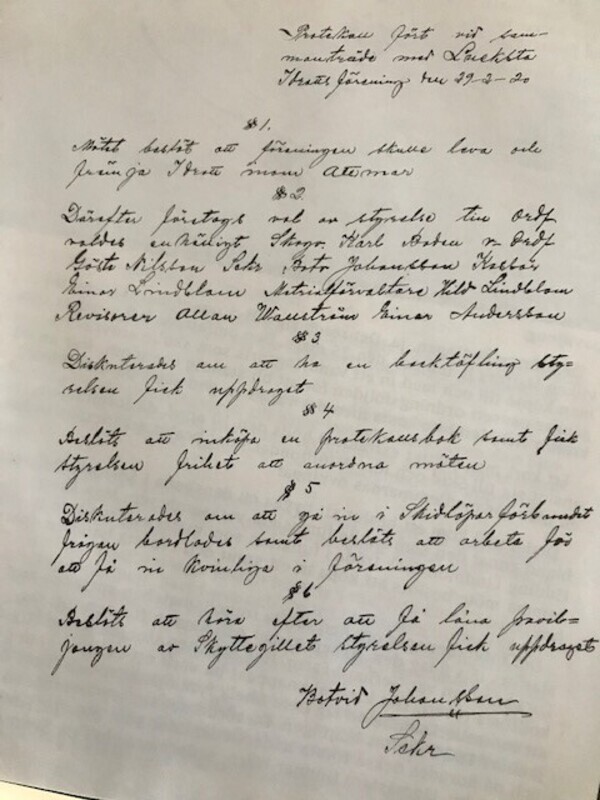 Protokoll fört vid sam-
manträde med Lucksta
Idrottsförening den 29-2-20
§ 1.
Mötet beslöt att föreningen skulle leva och
främja Idrott inom Attmar
§ 2
Därefter företogs val av styrelse till Ordf
valdes enhäligt Skogv. Karl Boden v- Ordf
Gösta Nilsson Sekr Botv Johansson Kassör
Einar Lindblom Matrialförvaltare Hild Lindblom
Revisorer Allan Wallström Einar Andersson
§ 3
Diskuterades om att ha en backtäfling sty-
relsen fick uppdraget
§ 4
Beslöts att inköpa en protokollsbok samt fick
styrelsen frihet att anordna möten
§ 5
Diskuterades om att gå in i Skidlöparförbundet
frågan bordlades samt beslöts att arbeta för
att få in kvinliga i föreningen
§ 6
Beslöts att höra efter att få låna pavil-
jongen av Skyttegillet styrelsen fick uppdraget
Botvid Johansson
Sekr